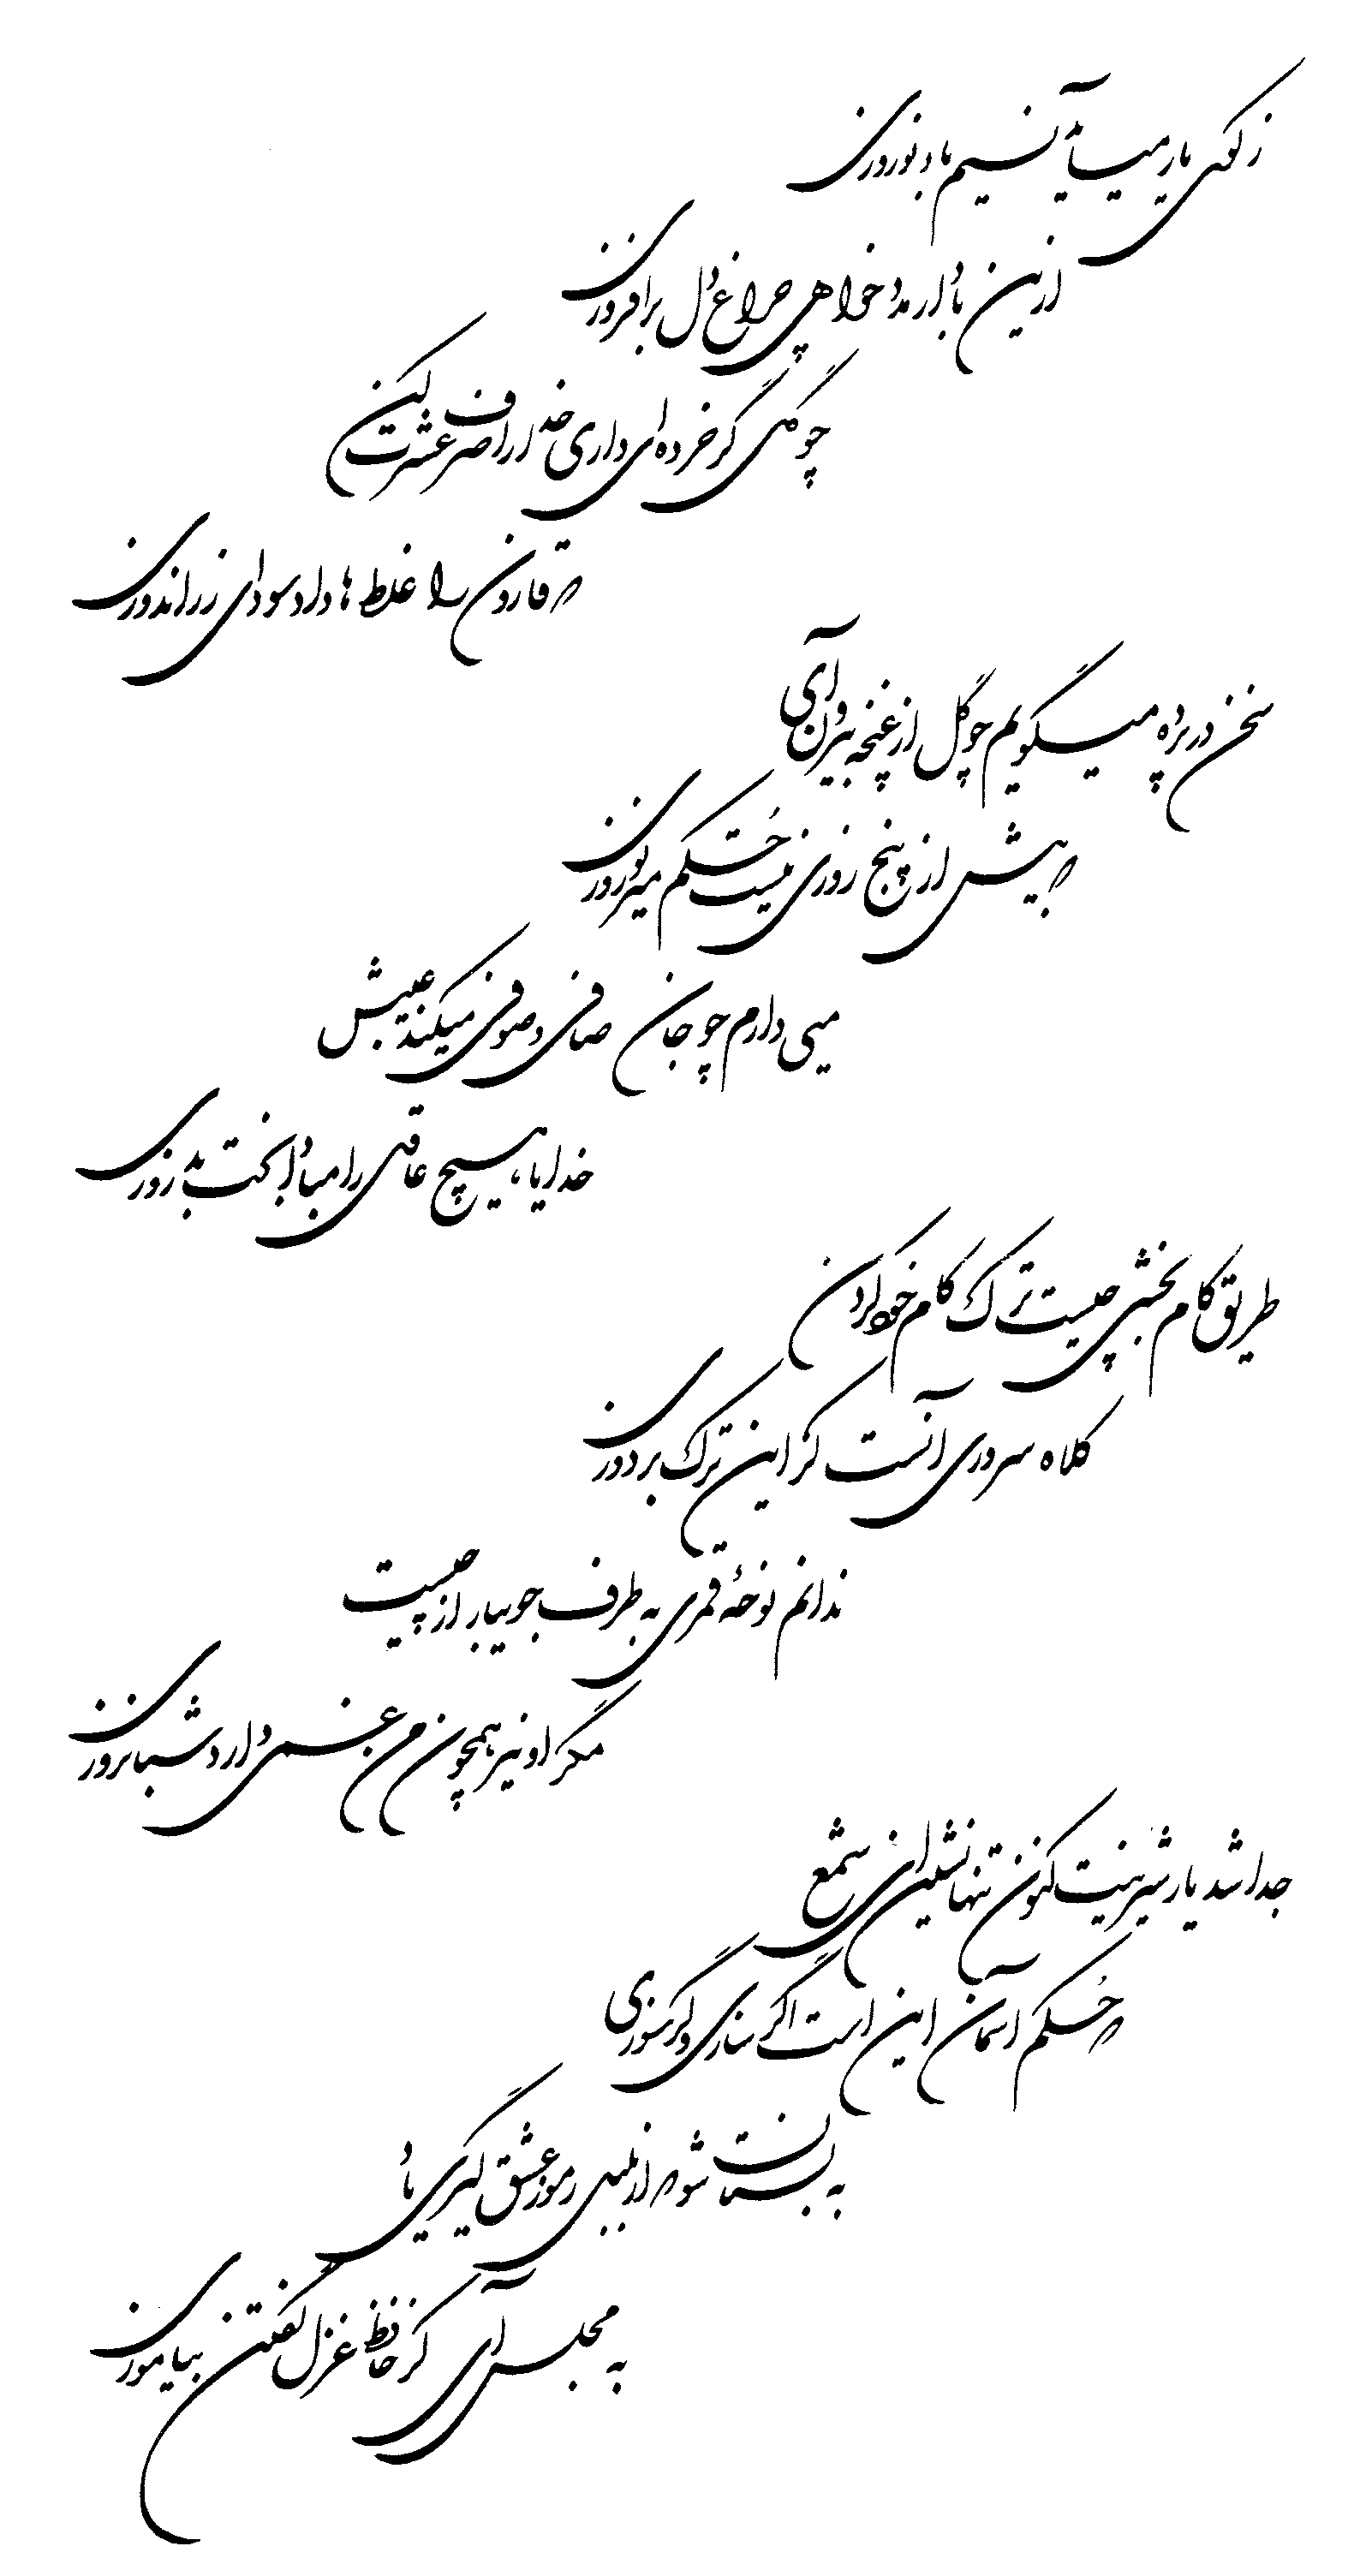 ز کوی یار می‌آید نسیم باد نوروزی
ازین باد ار مدد خواهی چراغ دل برافروزی
چو گل گر خرده‌ای داری خدا را صرف عشرت کن
که قارون را غلط‌ها داد سودای زراندوزی
سخن در پرده می‌گویم چو گل از غنچه بیرون آی
که بیش از پنج روزی نیست حُکم میر نوروزی
میی دارم چو جان صافی و صوفی می‌کند عیبش
خدایا، هیچ عاقل را مبادا بخت بد روزی
طریق کام بخشی چیست ترک کام خود کردن
کلاه سروری آنست کز این ترک بردوزی
ندانم نوحهٔ قمری به طرف جویبار از چیست
مگر او نیز همچون من غمی دارد شبانروزی
جدا شد یار شیرینت کنون تنها نشین ای شمع
که حُکم آسمان این است اگر سازی وگر سوزی
به بستان شو که از بلبل رموز عشق گیری یاد
به مجلس آی کز حافظ غزل گفتن بیاموزی